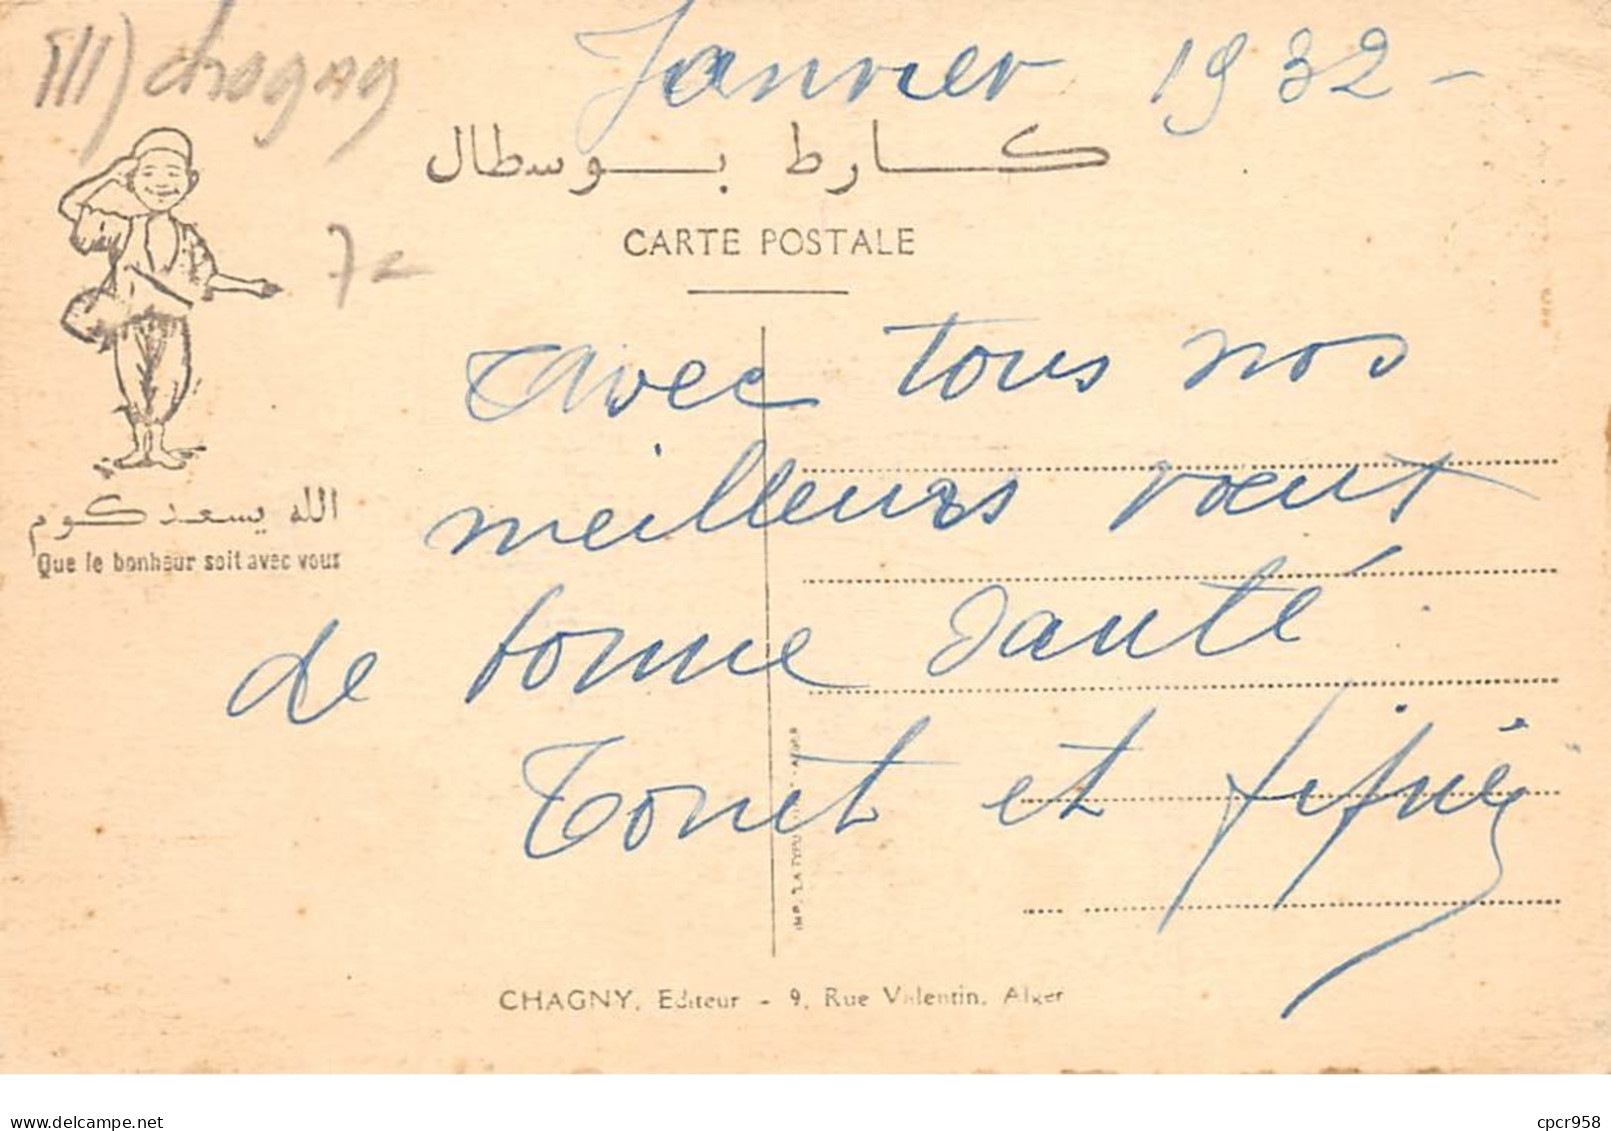 Janvier 1932 -
Ill) chagny
كارط بوسطال
CARTE POSTALE
7-
avec tous nos
meilleurs vœux
الله يسعدكوم
Que le bonheur soit avec vous
de bonne santé
Tonet et
IMP. "LA TYPO
CHAGNY, Editeur - 9, Rue Valentin, Alger
www.delcampe.net
cpcr958